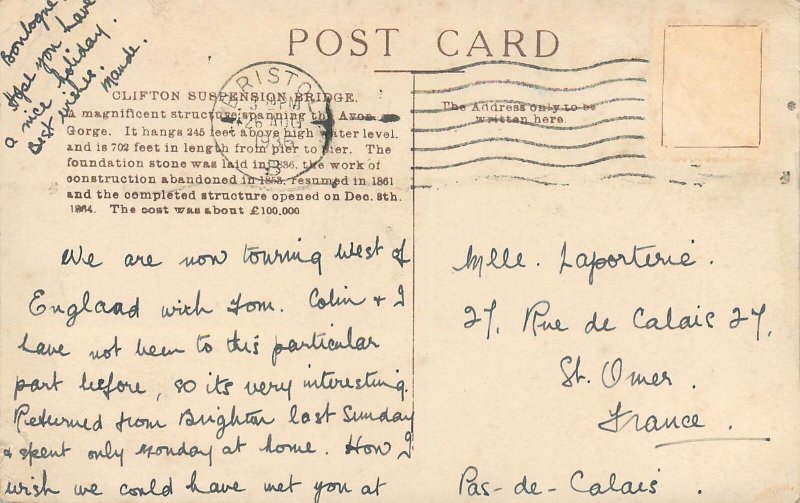 POST CARD
CLIFTON SUSPENSION BRIDGE.
A magnificent structure spanning the Avon
Gorge. It hangs 245 feet above high water level.
and is 702 feet in length from pier to pier. The
foundation stone was laid in 1836, the work of
construction abandoned in 1853, resumed in 1861
and the completed structure opened on Dec. 8th.
1864. The cost was about £100,000
The Address only to be
written here.
BRISTOL
PM
26 AUG
1936
8
We are now touring West of
England with Tom. Colin & I
have not been to this particular
part before, so its very interesting.
Returned from Brighton last Sunday
& spent only Monday at home. How I
wish we could have met you at
Boulogne.
Hope you have
a nice holiday.
Best wishes.
Maude.
Mlle. Laporterie.
27, Rue de Calais 27,
St. Omer.
France.
Pas-de-Calais.